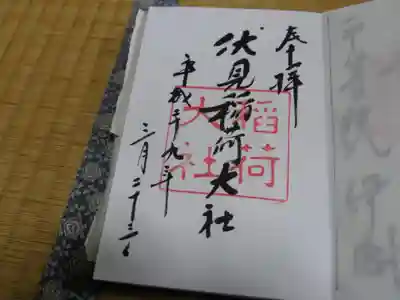 奉拝
伏見稲荷大社
平成廿九年
三月二十三日
稲荷
大社